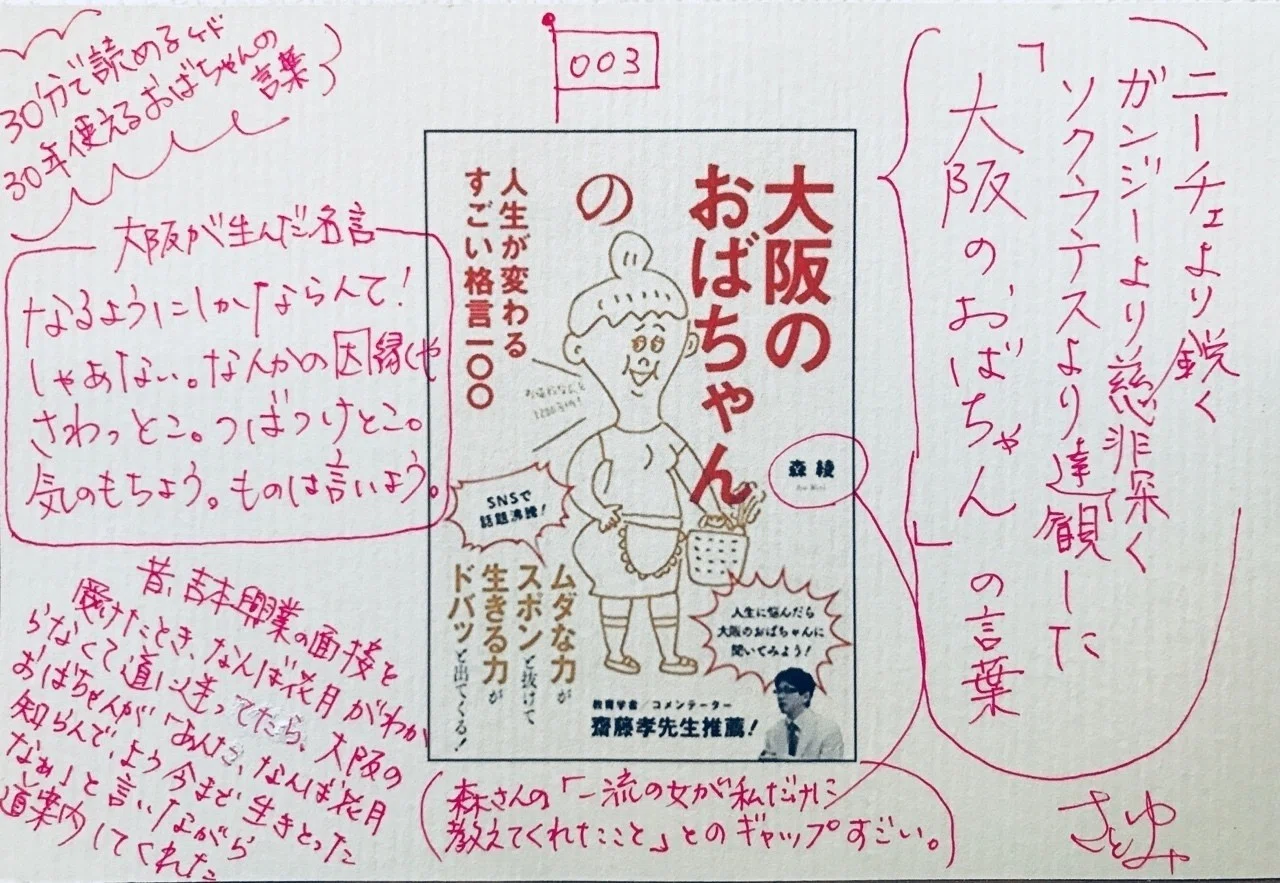 003
30分で読めるケド
30年使えるおばちゃんの
言葉
ニーチェより鋭く
ガンジーより慈悲深く
ソクラテスより達観した
「大阪のおばちゃん」の言葉
大阪が生んだ名言
なるようにしかならんて!
しゃあない。なんかの因縁じゃ
さわっとこ。つばつけとこ。
気のもちよう。ものは言いよう。
大阪の
おばちゃん
の
人生が変わる
すごい格言一〇〇
森 綾
Aya Mori
SNSで
話題沸騰!
ムダな力が
スポンと抜けて
生きる力が
ドバッと出てくる!
人生に悩んだら
大阪のおばちゃんに
聞いてみよう!
教育学者/コメンテーター
齋藤孝先生推薦!
昔、吉本興業の面接を
受けたとき、なんば花月がわか
らなくて道に迷ってたら、大阪の
おばちゃんが「あんた、なんば花月
知らんで、よう今まで生きとった
なぁ」と言いながら
道案内してくれた
(森さんの「一流の女が私だけに
教えてくれたこと」とのギャップすごい。)
さとみゆ